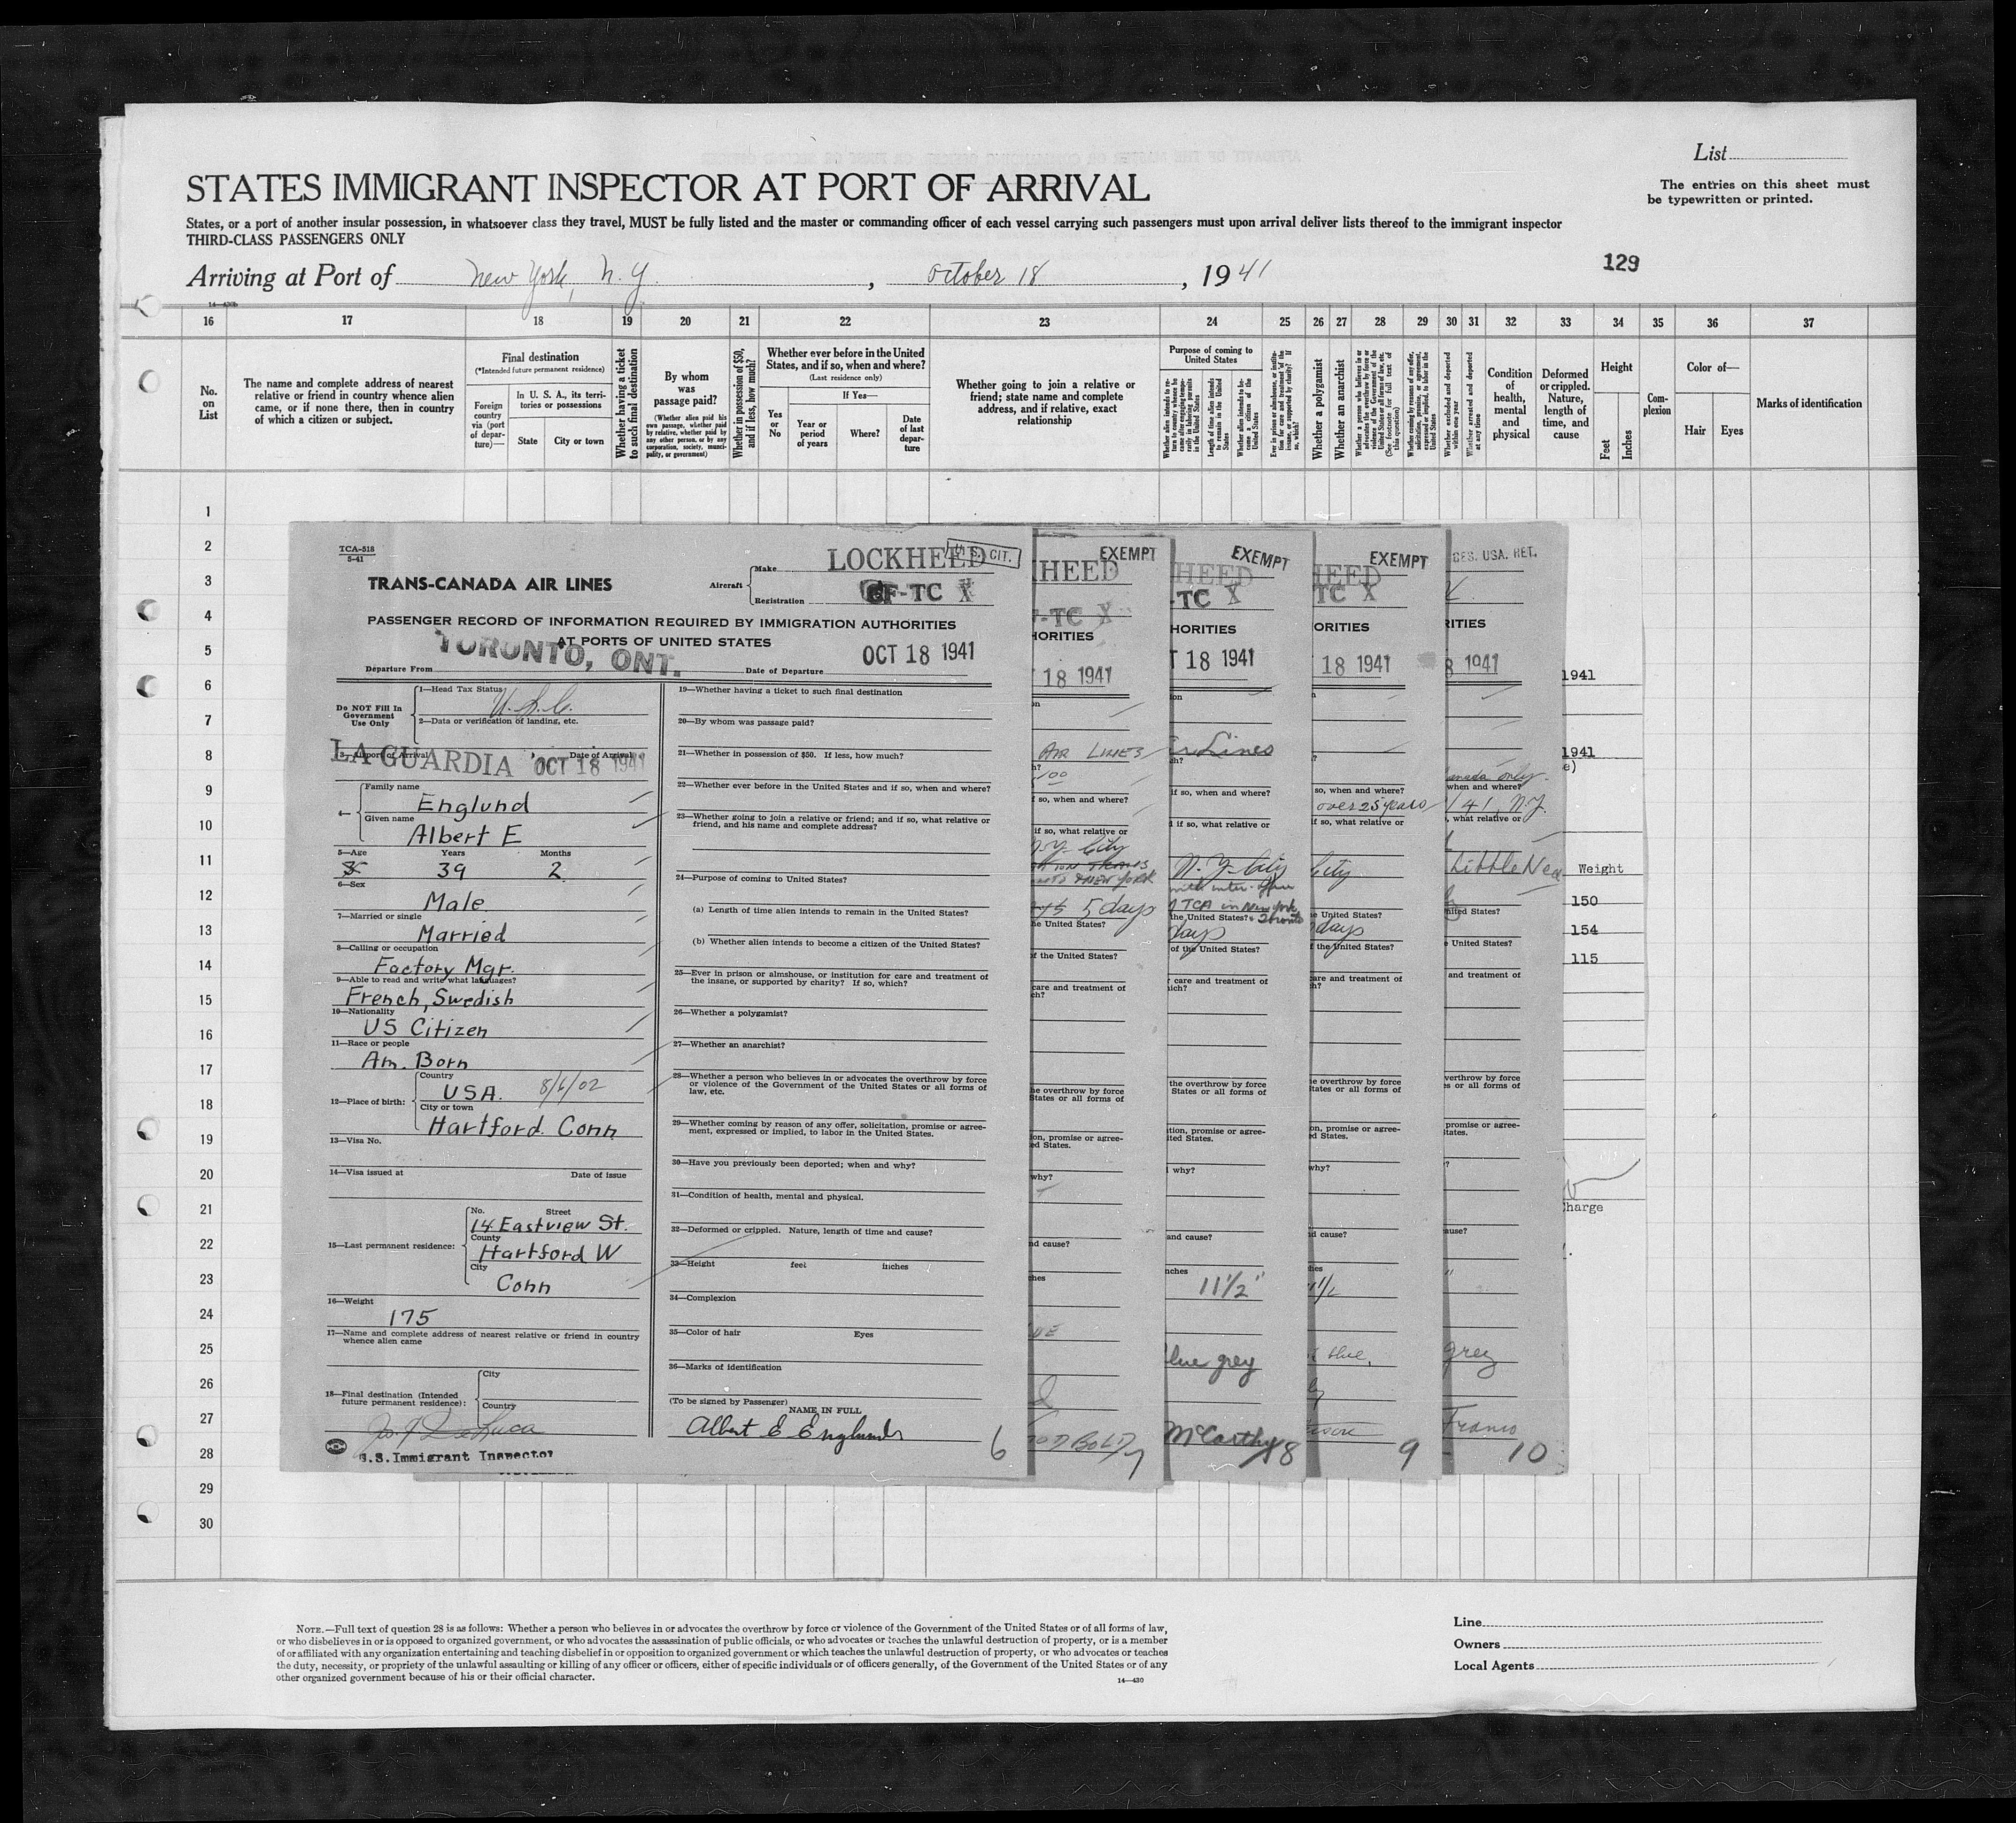 List
STATES IMMIGRANT INSPECTOR AT PORT OF ARRIVAL
The entries on this sheet must
be typewritten or printed.
States, or a port of another insular possession, in whatsoever class they travel, MUST be fully listed and the master or commanding officer of each vessel carrying such passengers must upon arrival deliver lists thereof to the immigrant inspector
THIRD-CLASS PASSENGERS ONLY
129
Arriving at Port of New York, N.Y. , October 18 , 1941
16 17 18 19 20 21 22 23 24 25 26 27 28 29 30 31 32 33 34 35 36 37
No. on List
The name and complete address of nearest
relative or friend in country whence alien
came, or if none there, then in country
of which a citizen or subject.
Final destination
(*Intended future permanent residence)
Foreign country via (port of departure)—
In U. S. A., its territories or possessions
State
City or town
Whether having a ticket to such final destination
By whom was passage paid?
(Whether alien paid his own passage, whether paid by relative, whether paid by any other person, or by any corporation, society, municipality, or government)
Whether in possession of $50, and if less, how much?
Whether ever before in the United States, and if so, when and where?
(Last residence only)
Yes or No
If Yes—
Year or period of years
Where?
Date of last departure
Whether going to join a relative or
friend; state name and complete
address, and if relative, exact
relationship
Purpose of coming to United States
Length of time alien intends to remain in the United States
Whether alien intends to become a citizen of the United States
Whether a polygamist
Whether an anarchist
(See footnote for full text of this question)
Whether excluded and deported within one year
Whether arrested and deported at any time
Condition of health, mental and physical
Deformed or crippled. Nature, length of time, and cause
Height
Feet
Inches
Complexion
Color of—
Hair
Eyes
Marks of identification
1
2
3
4
5
6
7
8
9
10
11
12
13
14
15
16
17
18
19
20
21
22
23
24
25
26
27
28
29
30
TCA-518
5-41
TRANS-CANADA AIR LINES
Aircraft
Make LOCKHEED
U. S. CIT.
Registration CF-TC X
PASSENGER RECORD OF INFORMATION REQUIRED BY IMMIGRATION AUTHORITIES
AT PORTS OF UNITED STATES
Departure From TORONTO, ONT. Date of Departure OCT 18 1941
Do NOT Fill In
Government
Use Only
1—Head Tax Status U.S.C.
2—Data or verification of landing, etc.
3—Airport of Arrival Date of Arrival
LA GUARDIA OCT 18 1941
4—
Family name
Englund
Given name
Albert E
5—Age Years Months
39 2
6—Sex
Male
7—Married or single
Married
8—Calling or occupation
Factory Mgr.
9—Able to read and write what languages?
French, Swedish
10—Nationality
US Citizen
11—Race or people
Am. Born
12—Place of birth:
Country
USA. 8/6/02
City or town
Hartford Conn
13—Visa No.
14—Visa issued at Date of issue
15—Last permanent residence:
No. Street
14 Eastview St.
County
Hartford W
City
Conn
16—Weight
175
17—Name and complete address of nearest relative or friend in country
whence alien came
18—Final destination (Intended
future permanent residence):
City
Country
U.S. Immigrant Inspector
19—Whether having a ticket to such final destination
20—By whom was passage paid?
21—Whether in possession of $50. If less, how much?
22—Whether ever before in the United States and if so, when and where?
23—Whether going to join a relative or friend; and if so, what relative or
friend, and his name and complete address?
24—Purpose of coming to United States?
(a) Length of time alien intends to remain in the United States?
(b) Whether alien intends to become a citizen of the United States?
25—Ever in prison or almshouse, or institution for care and treatment of
the insane, or supported by charity? If so, which?
26—Whether a polygamist?
27—Whether an anarchist?
28—Whether a person who believes in or advocates the overthrow by force
or violence of the Government of the United States or all forms of
law, etc.
29—Whether coming by reason of any offer, solicitation, promise or agree-
ment, expressed or implied, to labor in the United States.
30—Have you previously been deported; when and why?
31—Condition of health, mental and physical.
32—Deformed or crippled. Nature, length of time and cause?
33—Height feet inches
34—Complexion
35—Color of hair Eyes
36—Marks of identification
(To be signed by Passenger)
NAME IN FULL
Albert E Englund
6
EXEMPT
HEED
-TC X
HORITIES
18 1941
AIR LINES
if so, when and where?
if so, what relative or
N.Y. City
5 days
the United States?
of the United States?
care and treatment of
the overthrow by force
States or all forms of
tion, promise or agree-
ed States.
why?
nd cause?
7
EXEMPT
HEED
-TC X
HORITIES
T 18 1941
Lines
if so, when and where?
if so, what relative or
N.Y. City
TCA in New York
the United States?
days
of the United States?
care and treatment of
the overthrow by force
States or all forms of
tion, promise or agree-
ited States.
why?
and cause?
nches
11 1/2"
blue grey
McCarthy
8
EXEMPT
HEED
TC X
ORITIES
18 1941
so, when and where?
over 25 years
if so, what relative or
City
e United States?
days
f the United States?
are and treatment of
e overthrow by force
tates or all forms of
on, promise or agree-
d States.
why?
d cause?
blue.
9
DES. USA. RET.
RITIES
8 1941
Canada only.
when and where?
41, N.Y.
, what relative or
Little Nec
United States?
e United States?
and treatment of
verthrow by force
es or all forms of
promise or agree-
tates.
ause?
grey
Franco
10
1941
1941
e)
Weight
150
154
115
harge
NOTE.—Full text of question 28 is as follows: Whether a person who believes in or advocates the overthrow by force or violence of the Government of the United States or of all forms of law,
or who disbelieves in or is opposed to organized government, or who advocates the assassination of public officials, or who advocates or teaches the unlawful destruction of property, or is a member
of or affiliated with any organization entertaining and teaching disbelief in or opposition to organized government or which teaches the unlawful destruction of property, or who advocates or teaches
the duty, necessity, or propriety of the unlawful assaulting or killing of any officer or officers, either of specific individuals or of officers generally, of the Government of the United States or of any
other organized government because of his or their official character.
14—430
Line
Owners
Local Agents